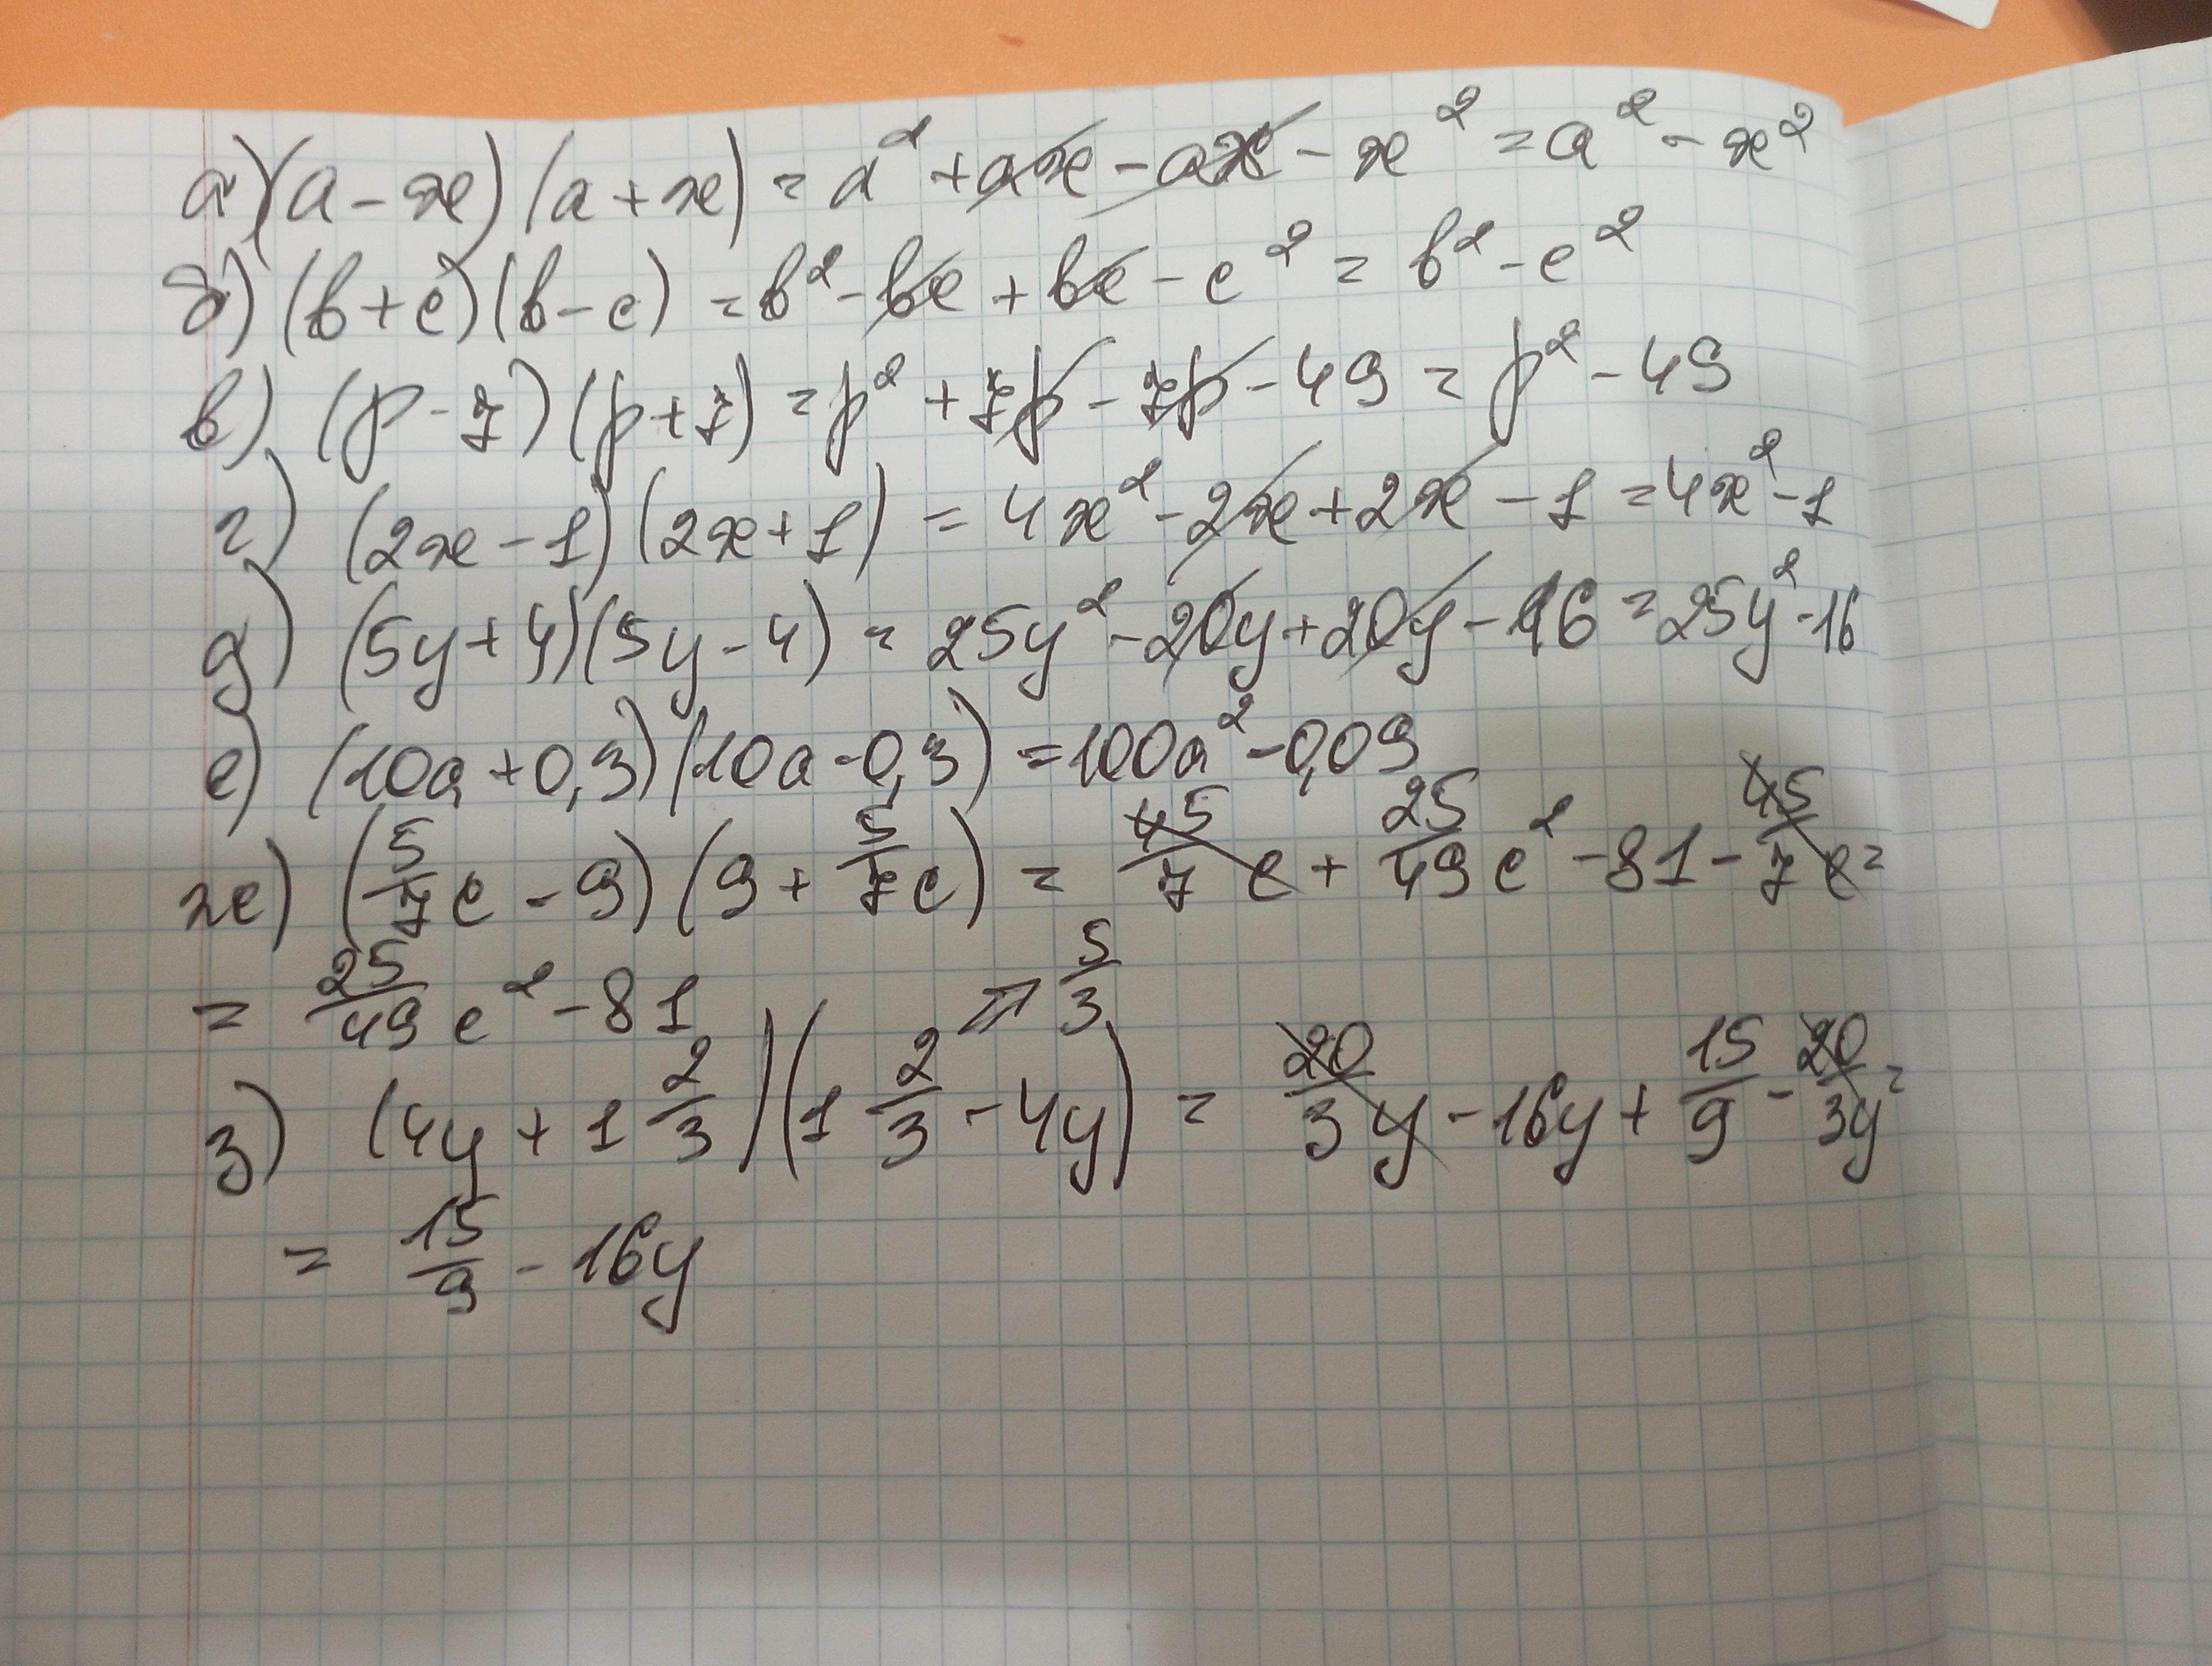 а) (a - x) (a + x) = a² + ax - ax - x² = a² - x²
б) (b + c) (b - c) = b² - bc + bc - c² = b² - c²
в) (p - 7) (p + 7) = p² + 7p - 7p - 49 = p² - 49
г) (2x - 1) (2x + 1) = 4x² - 2x + 2x - 1 = 4x² - 1
д) (5y + 4) (5y - 4) = 25y² - 20y + 20y - 16 = 25y² - 16
е) (10a + 0,3) (10a - 0,3) = 100a² - 0,09
ж) (5/7 c - 9) (9 + 5/7 c) = 45/7 c + 25/49 c² - 81 - 45/7 c =
= 25/49 c² - 81 ⇗ 5/3
з) (4y + 1 2/3) (1 2/3 - 4y) = 20/3 y - 16y + 15/9 - 20/3y =
= 15/9 - 16y